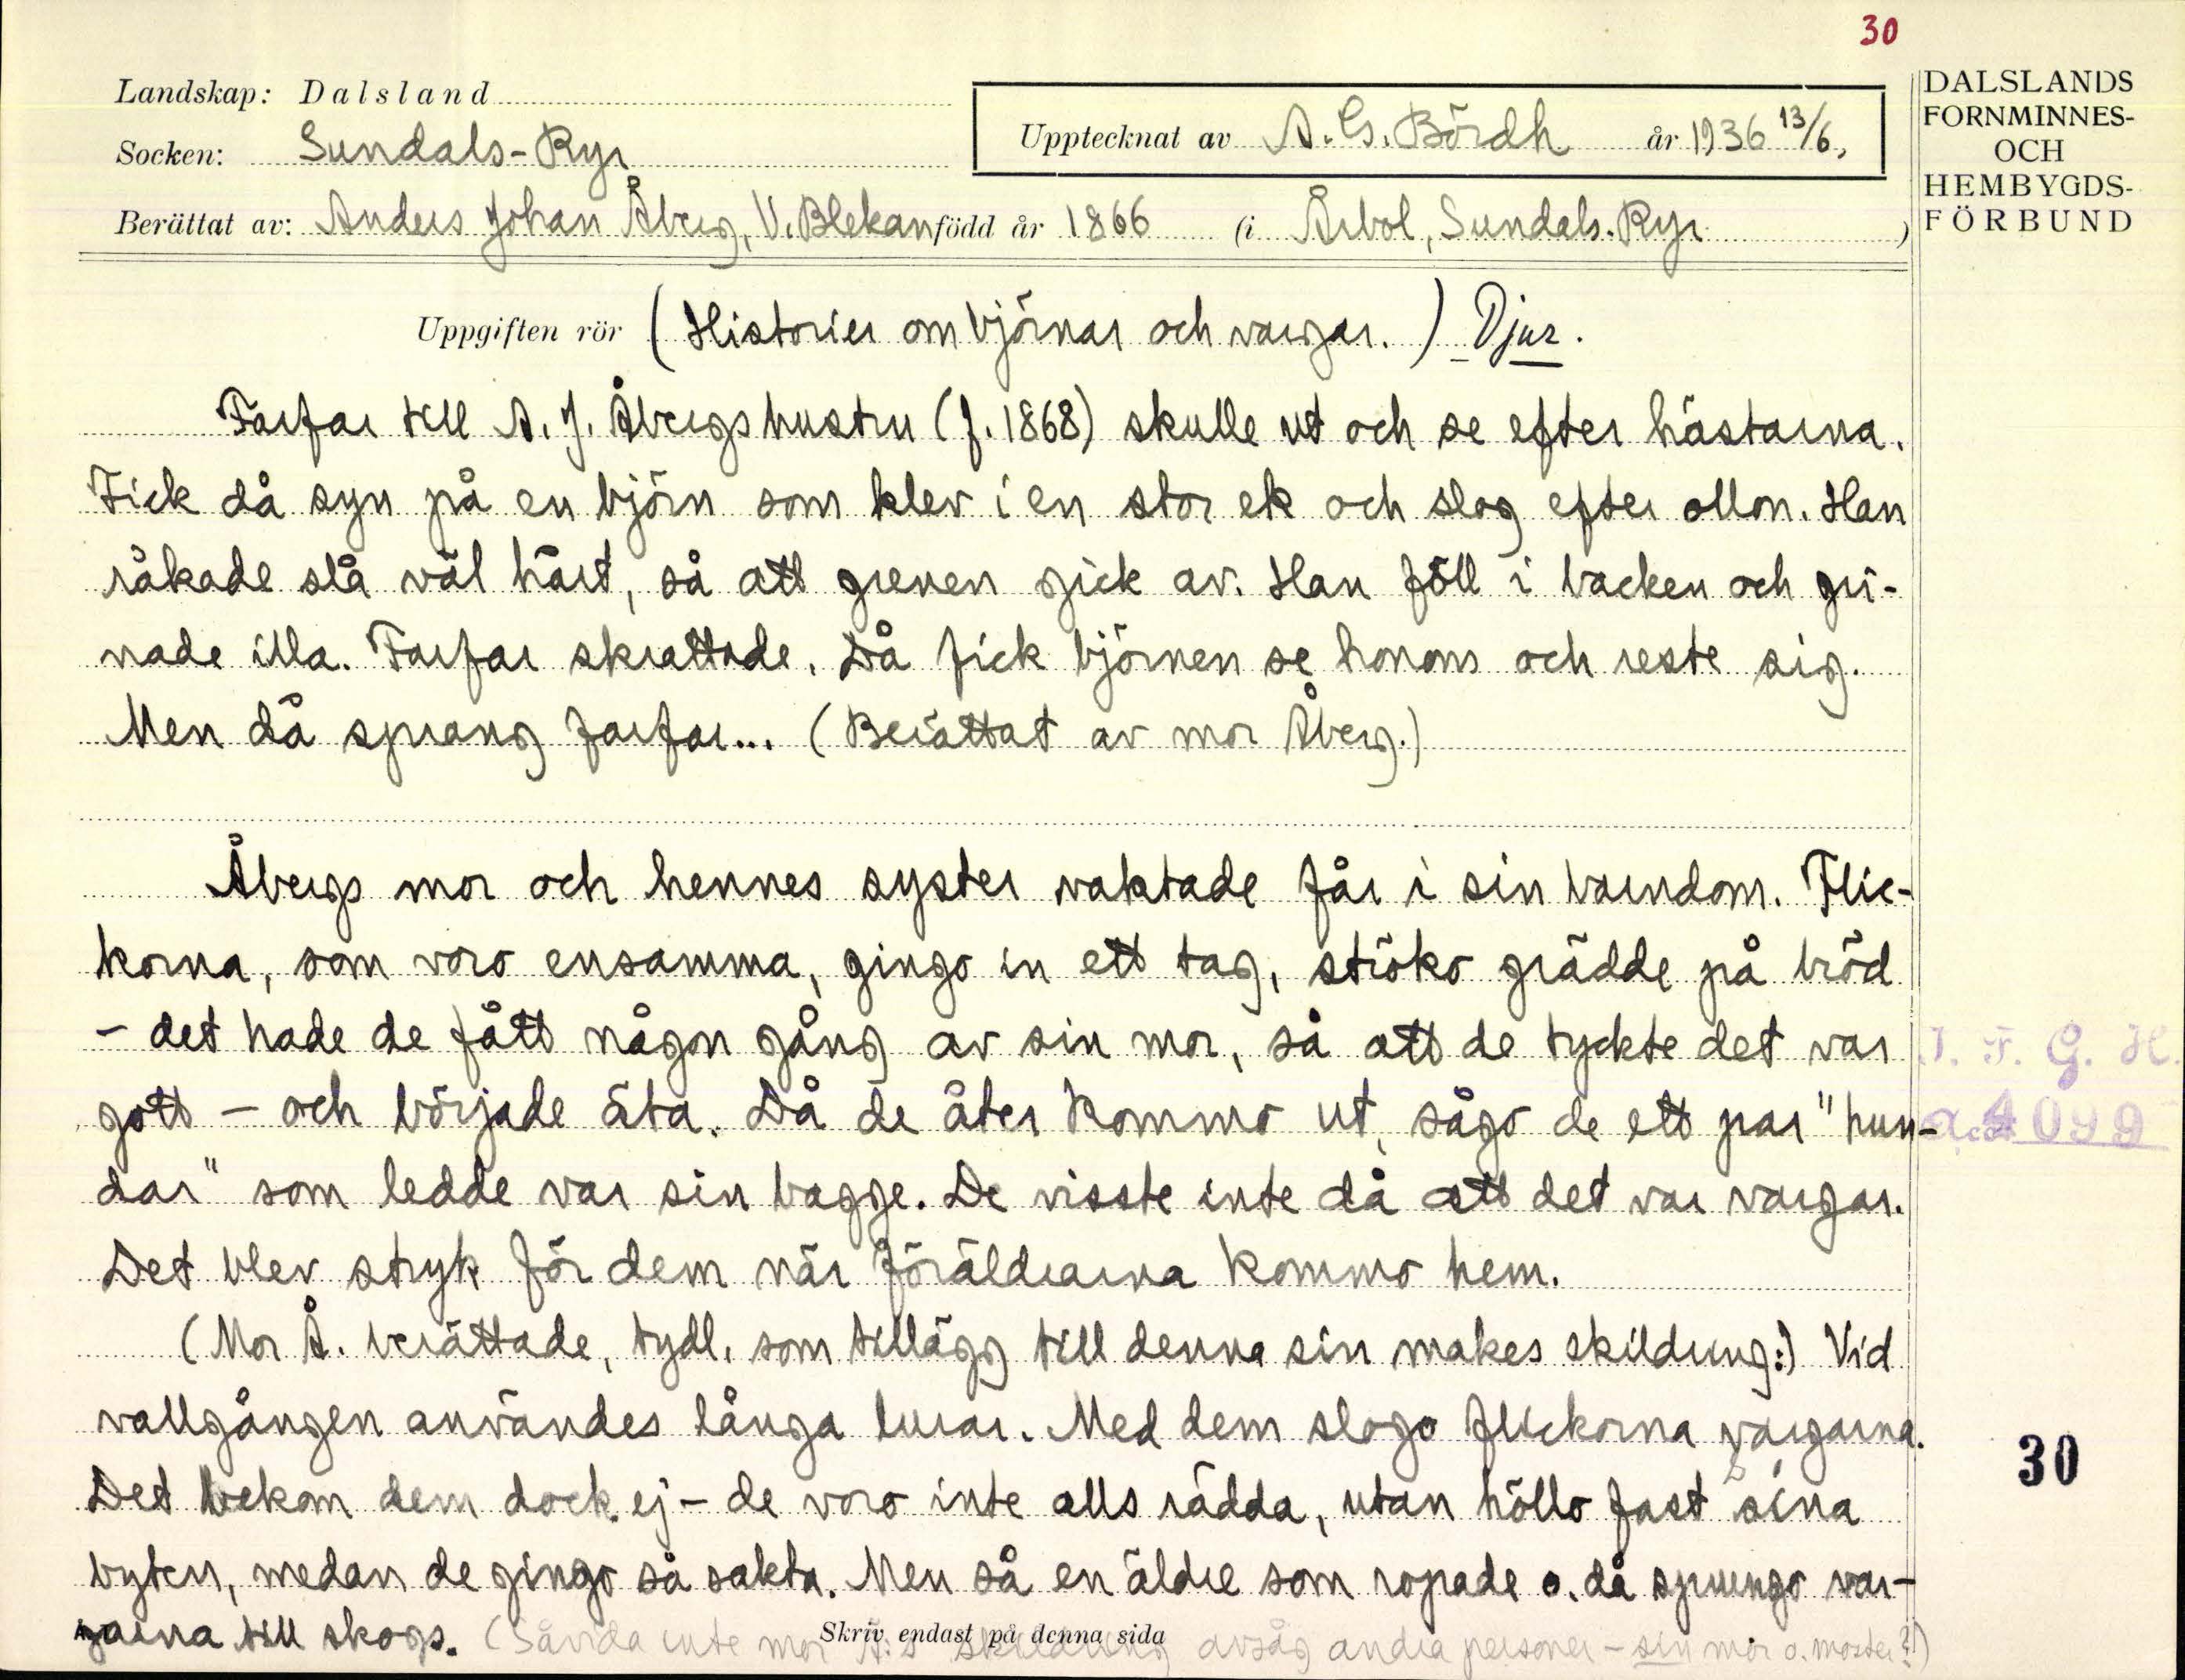 30
Landskap: Dalsland
Socken: Sundals-Ryr
Upptecknat av A. G. Bördh år 1936 13/6,
Berättat av: Anders Johan Åberg, V. Blekan född år 1866 (i Årbol, Sundals-Ryr )
DALSLANDS
FORNMINNES-
OCH
HEMBYGDS-
FÖRBUND
Uppgiften rör (Historier om björnar och vargar.) Djur.
Farfar till A. J. Åbergs hustru (f. 1868) skulle ut och se efter hästarna.
Fick då syn på en björn som klev i en stor ek och slog efter ollon. Han
råkade slå väl hårt, så att grenen gick av. Han föll i backen och gri-
nade illa. Farfar skrattade. Då fick björnen se honom och reste sig.
Men då sprang farfar... (Berättat av mor Åberg.)
Åbergs mor och hennes syster vaktade får i sin barndom. Flic-
korna, som voro ensamma, gingo in ett tag, ströko grädde på bröd
- det hade de fått någon gång av sin mor, så att de tyckte det var
gott - och började äta. Då de åter kommo ut, sågo de ett par "hun-
dar" som ledde var sin bagge. De visste inte då att det var vargar.
Det blev stryk för dem när föräldrarna kommo hem.
(Mor Å. berättade, tydl. som tillägg till denna sin makes skildring:) Vid
vallgången användes långa lurar. Med dem slogo flickorna vargarna.
Det bekom dem dock ej - de voro inte alls rädda, utan höllo fast sina
byten, medan de gingo så sakta. Men så en äldre som ropade o. då sprungo var-
garna till skogs. (Såvida inte mor Å:s skildring avsåg andra personer - sin mor o. moster?)
Skriv endast på denna sida
I. F. G. H.
acc. 4099
30